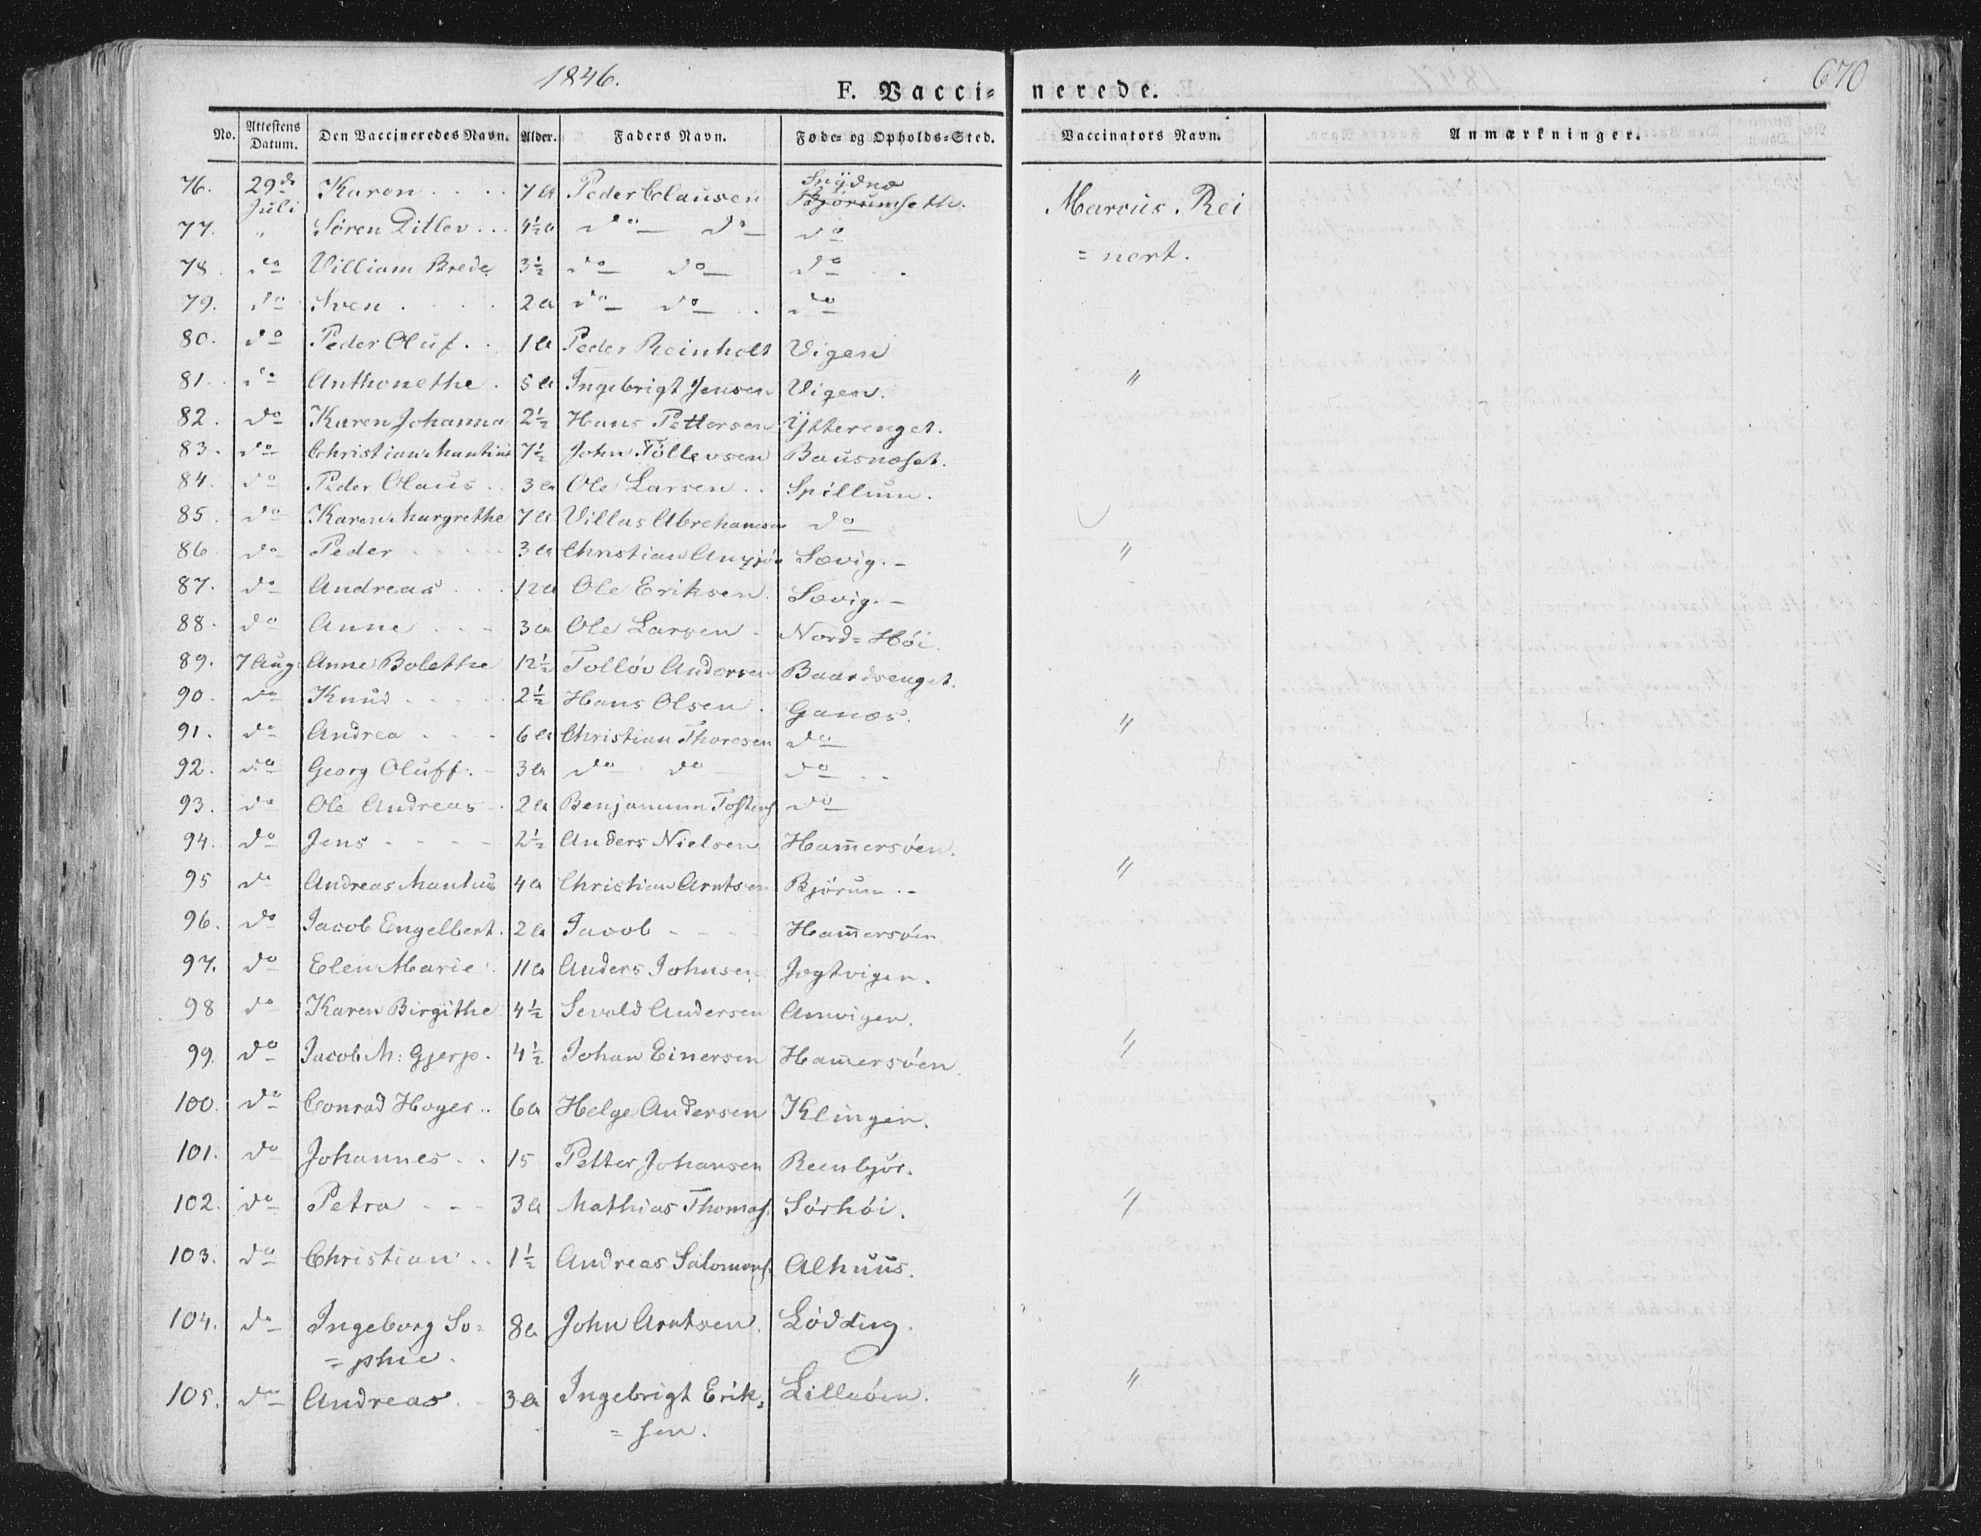 1846.
F. Vacci=
nerede.
670
No. Attestens Datum. Den Vaccineredes Navn. Alder. Faders Navn. Føde= og Opholds=Sted. Vaccinators Navn. Anmærkninger.
76. 29de Juli Karen 7 a Peder Clausen Marcus Rei
77. " Søren Ditlev 4½ a do do do = nert.
78. do Villiam Brede 3½ do do do
79. do Sven 2 a do do do
80. do Peder Oluf 1 a Peder Reinholt Vigen
81. do Anthonethe 5 a Ingebrigt Jensen Vigen. "
82. do Karen Johanna 2½ Hans Pettersen Ytterenget.
83. do Christian Mantius 7½ John Tollevsen Bausnæset.
84. do Peder Olaus 3 a Ole Larsen Spillum.
85. do Karen Margrethe 7 a Villas Abrehamsen do
86 do Peder 3 a Christian Sævig. "
87. do Andreas 12 a Ole Eriksen Sævig.
88. do Anne 3 a Ole Larsen Nord=Høi.
89. 7 Aug: Anne Bolethe 12½ Tolløv Andersen Baardsenget.
90. do Knud 2½ Hans Olsen Ganæs.
91. do Andrea 6 a Christian Thoresen do "
92. do Georg Oluff. 3 a do do do
93. do Ole Andreas 2 a Benjamin Tostens do
94. do Jens 2½ Anders Nielsen Ham̅ersøen.
95 do Andreas Mantius 4 a Christian Arntsen Bjørum. "
96. do Jacob Engelbert. 2 a Jacob Ham̅ersøen
97. do Elen Marie 11 a Anders Johnsen Jægtvigen.
98 do Karen Birgithe 4½ Sevald Andersen Amvigen.
99. do Jacob M: Gjerp. 4½ Johan Einersen Ham̅ersøen "
100. do Conrad Hoyer 6 a Helge Andersen Klingen.
101. do Johannes 15 Petter Johansen Reinbjør.
102. do Petra 3 a Mathias Thomas. Sørhøi. "
103. do Christian 1½ Andreas Salomons. Alhuus.
104. do Ingeborg So= 8 a John Arntsen. Lødding.
= phie.
105. do Andreas 3 a Ingebrigt Erik= Lilleøen. "
= sen.